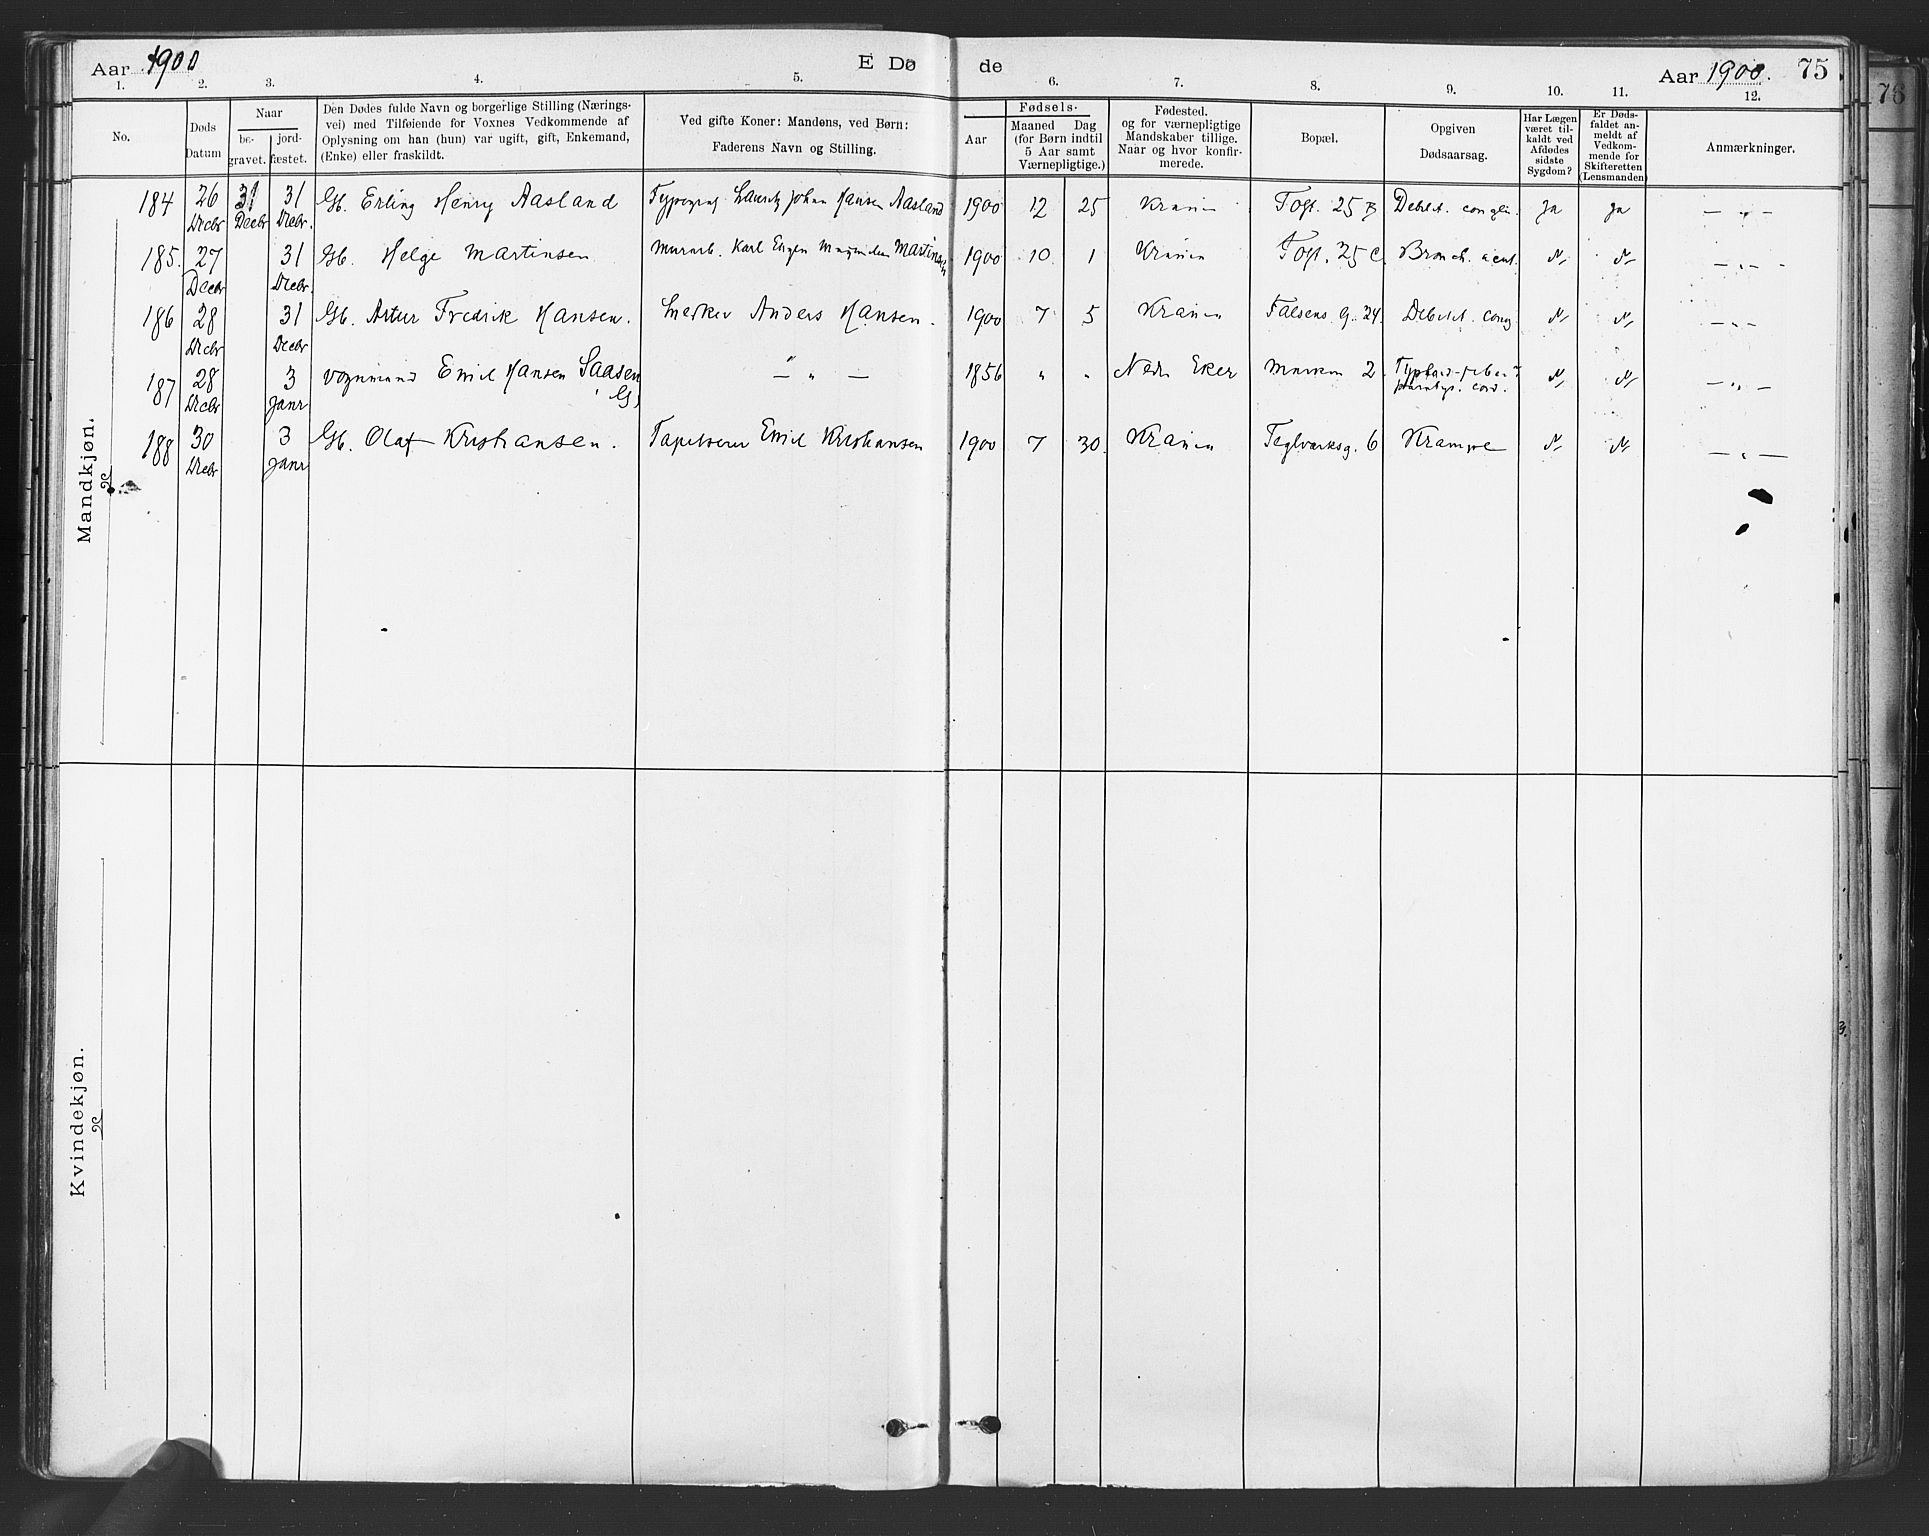 Aar 1900
E Dø
de
Aar 1900.
75
76
1.
2.
3.
4.
5.
6.
7.
8.
9.
10.
11.
12.
No.
Døds
Datum
Naar
be-
gravet.
jord-
fæstet.
Den Dødes fulde Navn og borgerlige Stilling (Nærings-
vei) med Tilføiende for Voxnes Vedkommende af
Oplysning om han (hun) var ugift, gift, Enkemand,
(Enke) eller fraskildt.
Ved gifte Koner: Mandens, ved Børn:
Faderens Navn og Stilling.
Fødsels-
Aar
Maaned Dag
(for Børn indtil
5 Aar samt
Værnepligtige.)
Fødested.
og for værnepligtige
Mandskaber tillige.
Naar og hvor konfir-
merede.
Bopæl.
Opgiven
Dødsaarsag.
Har Lægen
været til-
kaldt ved
Afdødes
sidste
Sygdom?
Er Døds-
faldet an-
meldt af
Vedkom-
mende for
Skifteretten
(Lensmanden)
Anmærkninger.
Mandkjøn.
184 26 Decbr 31 Decbr 31 Decbr. Gb. Erling Henry Aasland Typograf Lauritz Johan Hansen Aasland 1900 12 25 Krania Togt. 25 B Debilit. congen. Ja Ja — „ —
185. 27 Decbr 31 Decbr. Gb. Helge Martinsen Murarb. Karl Martinsen 1900 10 1 Krania Togt. 25 C. Bronch. acut. N N - „ -
186 28 Decbr 31 Decbr Gb. Artur Fredrik Hansen. Snedker Anders Hansen. 1900 7 5 Krania Falsens G. 24. Debilit. cong N N — „ —
187 28 Decbr 3 Janr Vognmand Emil Hansen Saasen G. — „ — 1856 „ „ Nedr Eker Marken 2. cord. N N — „ —
188 30 Decbr 3 Janr Gb. Olaf Kristiansen. Tapetserer Emil Kristiansen 1900 7 30. Krania Teglværksg. 6 Krampe N N — „ —
Kvindekjøn.